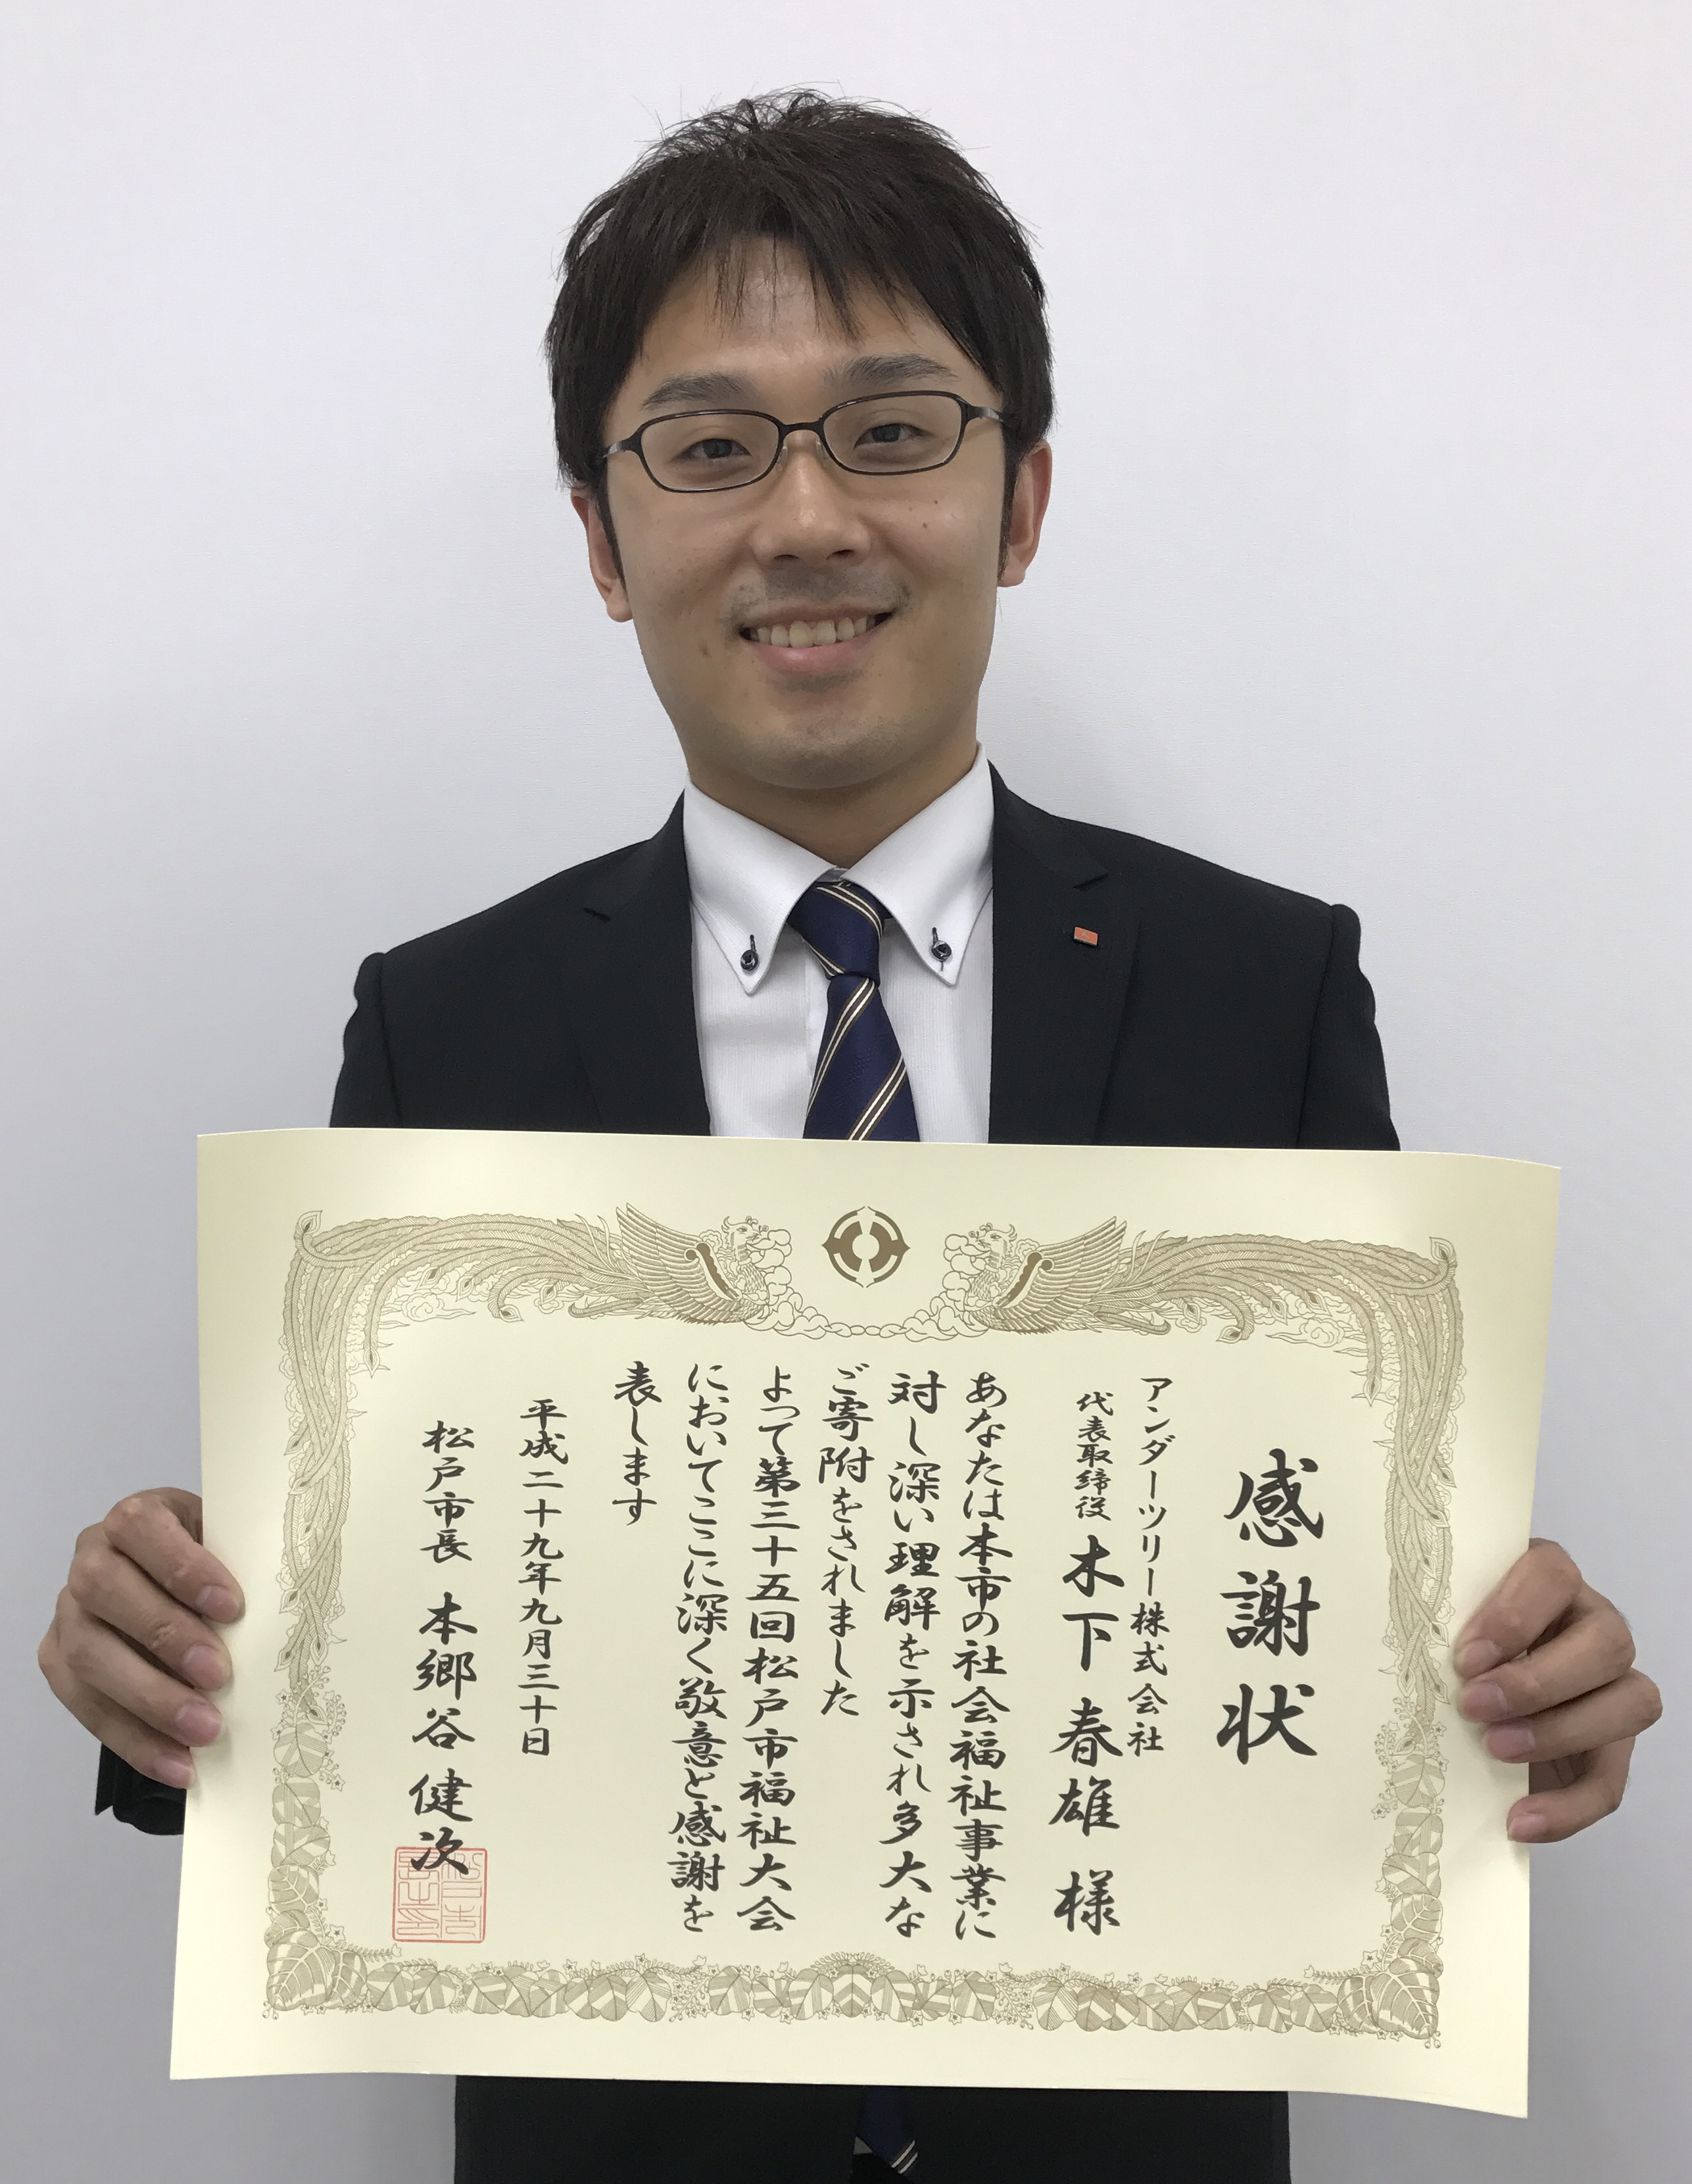 感謝状
アンダーツリー株式会社
代表取締役 木下 春雄 様
あなたは本市の社会福祉事業に
対し深い理解を示され多大な
ご寄附をされました
よって第三十五回松戸市福祉大会
においてここに深く敬意と感謝を
表します
平成二十九年九月三十日
松戸市長 本郷谷 健次